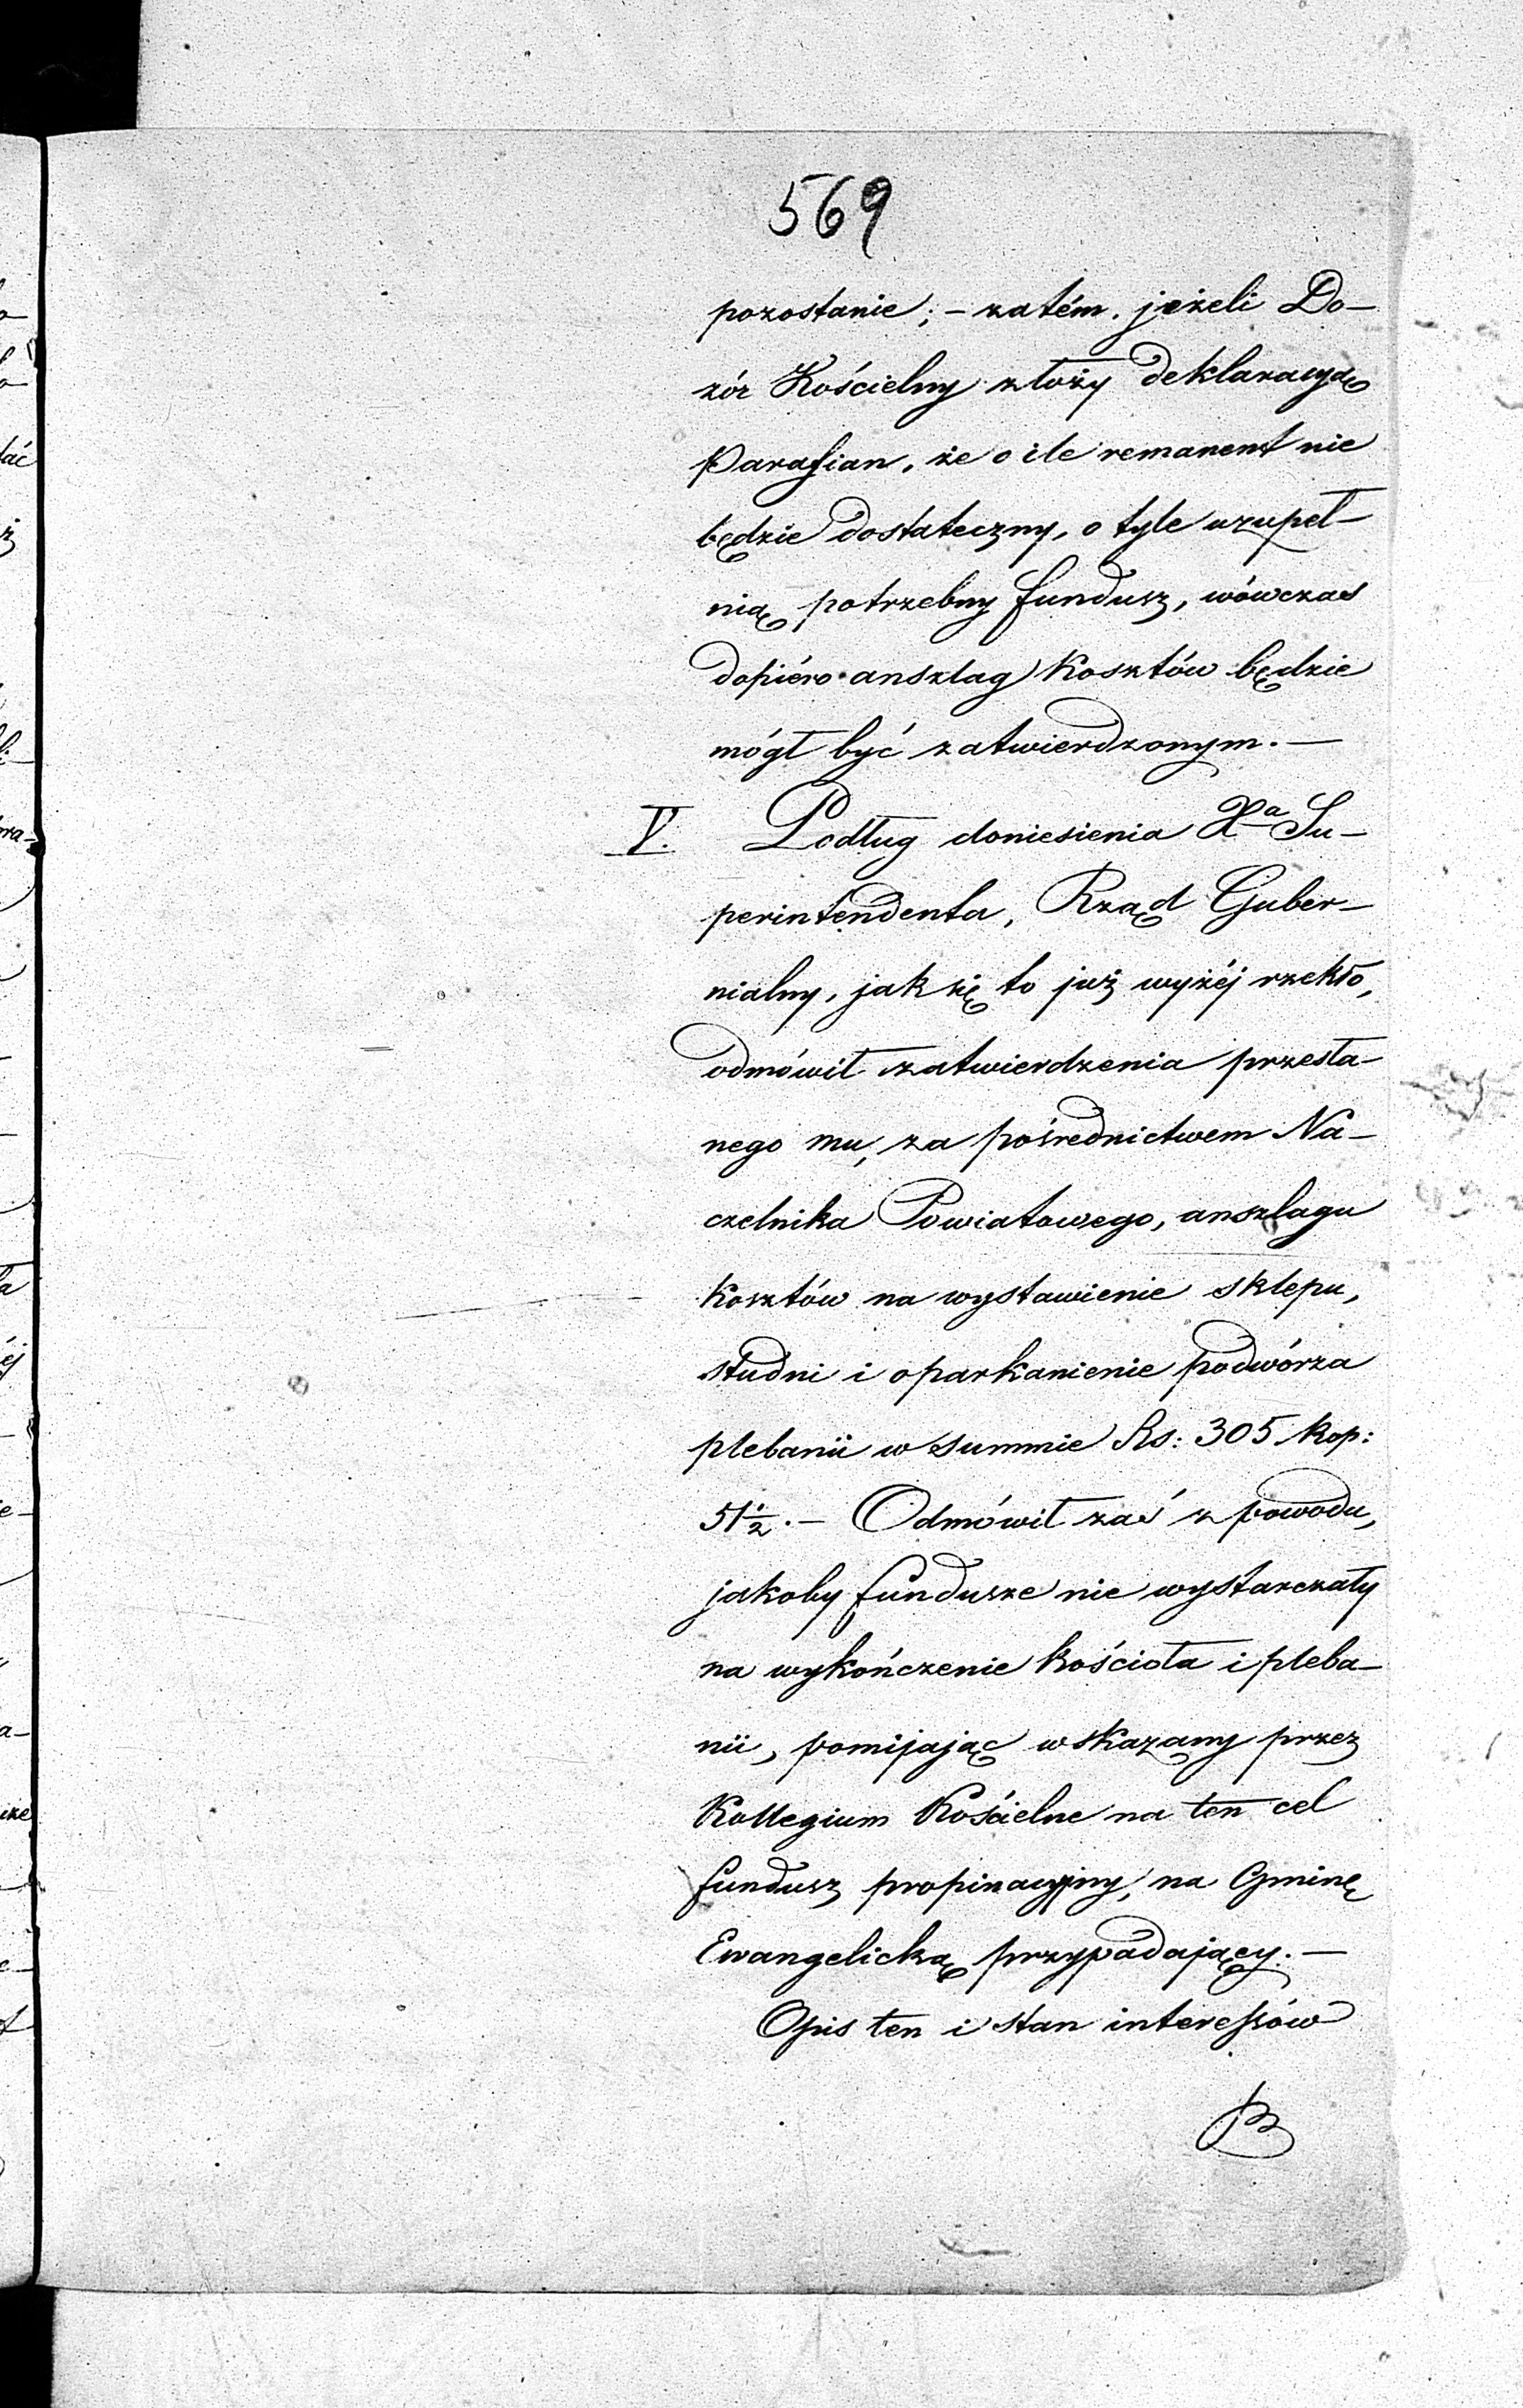 569
pozostanie; – zatém. jeżeli Do–
zór Kościelny złoży deklaracyą
Parafian, że o ile remanent nie
będzie dostateczny, o tyle uzupeł–
nią potrzebny fundusz, wówczas
dopiéro anszlag kosztów będzie
mógł być zatwierdzonym. —
V. Podług doniesienia Xa Su–
perintendenta, Rząd Guber–
nialny, jak się to już wyżéj rzekło,
odmówił zatwierdzenia przesła–
nego mu, za pośrednictwem Na–
czelnika Powiatowego, anszlagu
kosztów na wystawienie sklepu,
studni i oparkanienie podwórza
plebanii w summie Rs: 305 kop:
51½. – Odmówił zaś z powodu,
jakoby fundusze nie wystarczały
na wykończenie kościoła i pleba–
nii, pomijając wskazany przez
Kollegium Kościelne na ten cel
fundusz propinacyjny, na Gminę
Ewangelicką przypadający. —
Opis ten i stan interessów